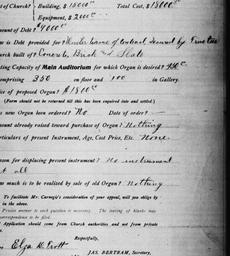 of Church? Building, $ 16000 Total Cost, $ 18000
Equipment, $ 2000
mount of Debt? $ 9000
is Debt provided for?
church built of? Concrete, Brick and Slate
ating Capacity of Main Auditorium for which Organ is desired?
omprising 350 on floor and 100 in Gallery.
ice of proposed Organ? $1800
(Form should not be returned till this has been enquired into and settled.)
s new Organ been ordered? No Date of order? —
ount already raised toward purchase of Organ? Nothing
rticulars of present Instrument, Age, Cost Price, Etc. None
ason for displacing present instrument? No instrument
at all
ow much is to be realized by sale of old Organ? Nothing
To facilitate Mr. Carnegie's consideration of your appeal, will you oblige by
in the above.
Precise answer to each question is necessary. The
correspondence to be filed.
Application should come from Church authorities and not from private
Respectfully,
JAS. BERTRAM, Secretary,